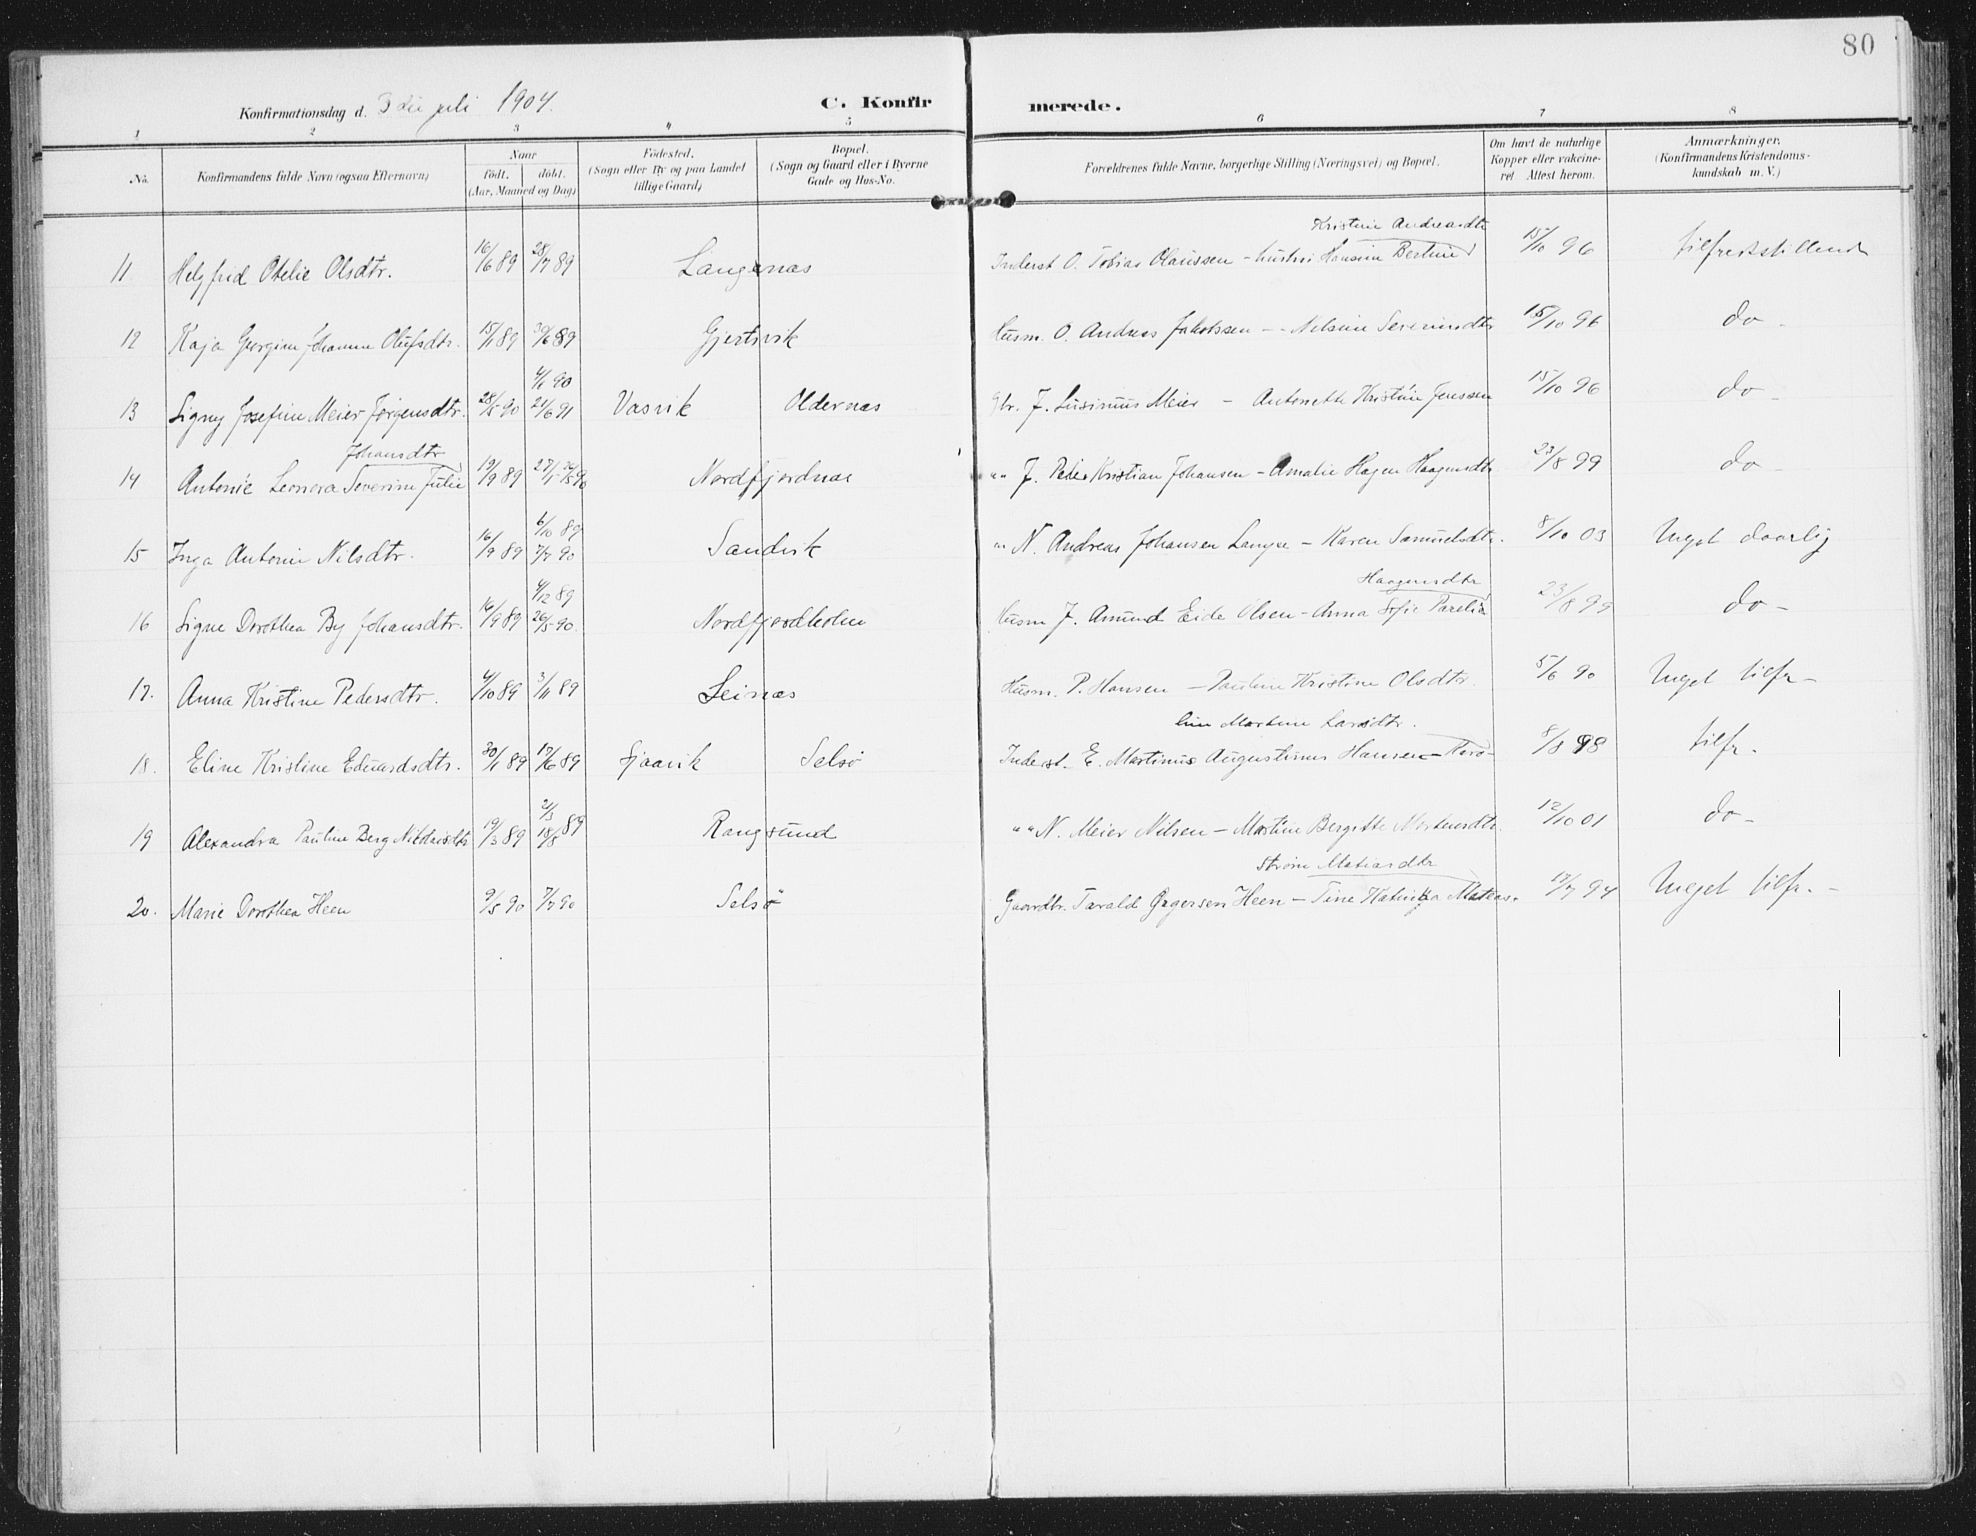 80
Konfirmationsdag d. 3die juli 1904.
C. Konfir merede.
1 2 3 4 5 6 7 8
No.
Konfirmandens fulde Navn (ogsaa Efternavn)
Naar
födt. döbt.
(Aar, Maaned og Dag)
Födested.
(Sogn eller By og paa Landet
tillige Gaard)
Bopæl.
(Sogn og Gaard eller i Byerne
Gade og Hus-No.
Forældrenes fulde Navne, borgerlige Stilling (Næringsvei) og Bopæl.
Om havt de naturlige
Kopper eller vakcine-
ret Attest herom.
Anmærkninger.
(Konfirmandens Kristendoms-
kundskab m. V.)
Kristine Andreasdtr
11 Helgfrid Otelie Olsdtr. 16/6 89 28/7 89 Langenæs Inderst O. Tobias Olaussen - hustru Hansine Bertine 15/10 96 tilfredsstillend
12 Kaja Georgine Johanne Olufsdtr. 15/1 89 30/6 89 Gjertsvik Husm. O. Andreas Jakobssen - Nilsine Severinsdtr 15/10 96 do -
4/6 90
13 Signy Josefine Meier Jørgensdtr. 28/5 90 21/6 91 Vasvik Oldernæs Gbr. J. Meier - Antonette Kristine Jenssen 15/10 96 do -
Johansdtr
14 Antonie Leonora Severine Julie 19/9 89 27/1 - 26/5 90 Nordfjordnæs "" J. Peder Kristian Johansen - Amalie Hagen Haagensdtr. 23/8 99 do -
6/10 89
15 Inga Antonie Nilsdtr. 16/9 89 7/7 90 Sandvik "" N. Andreas Johansen Lange - Karen Samuelsdtr. 8/10 03 Meget daarlig
4/12 89 Haagensdtr
16 Signe Dorothea By Johansdtr. 16/9 89 26/5 90. Nordfjordholm Husm J. Amund Eide Olsen - Anna Sofie Parelia 23/8 99 do -
17. Anna Kristine Pedersdtr. 4/10 89 3/11 89 Leinæs Husm. P. Hansen - Pauline Kristine Olsdtr. 5/6 90 Meget tilfr -
line Martine Larsdtr.
18. Eline Kristine Eduardsdtr. 30/1 89 17/6 89 Sjaavik Selsö Inderst. E. Martinus Augustinus Hansen - Karo- 8/8 98 tilfr.
21/3
19 Alexandra Pauline Berg Nikolaisdtr 19/3 89 18/8 89 Rangsund "" N. Meier Nilsen - Martine Bergitte Mortensdtr. 12/10 01 do -
Strøm Matiasdtr
20. Marie Dorothea Heen 9/5 90 7/7 90 Selsö Gaardbr. Tarald Heen - Tine Katinka 17/7 94 Meget tilfr. -